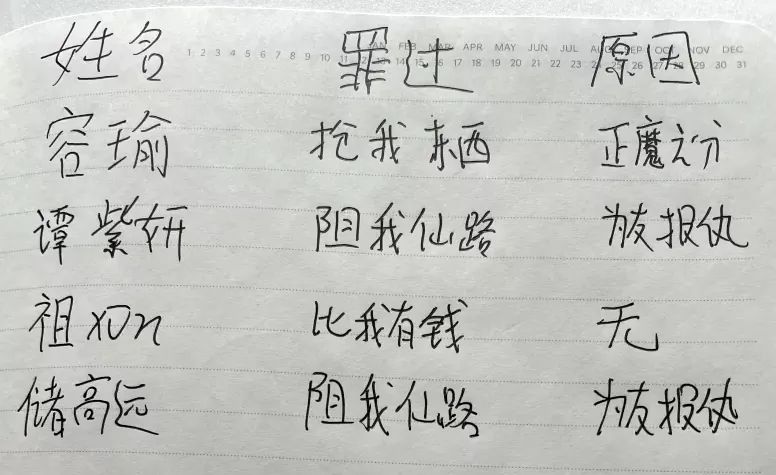 姓名 罪过 原因
1 2 3 4 5 6 7 8 9 10 11 12 13 14 15 16 17 18 19 20 21 22 23 24 25 26 27 28 29 30 31
JAN FEB MAR APR MAY JUN JUL AUG SEP OCT NOV DEC
容瑜 抢我东西 正魔之分
谭紫妍 阻我仙路 为友报仇
祖 比我有钱 无
储高远 阻我仙路 为友报仇